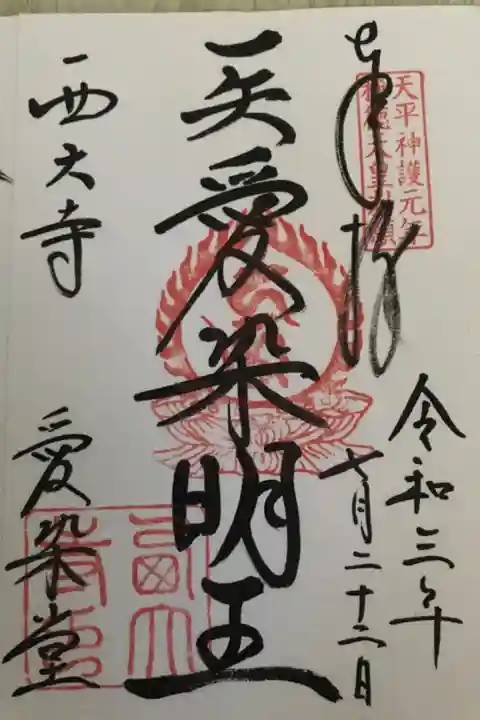 奉拝
天平神護元年
称徳天皇勅願
令和三年
七月二十二日
愛染明王
西大寺　愛染堂
西大
寺印